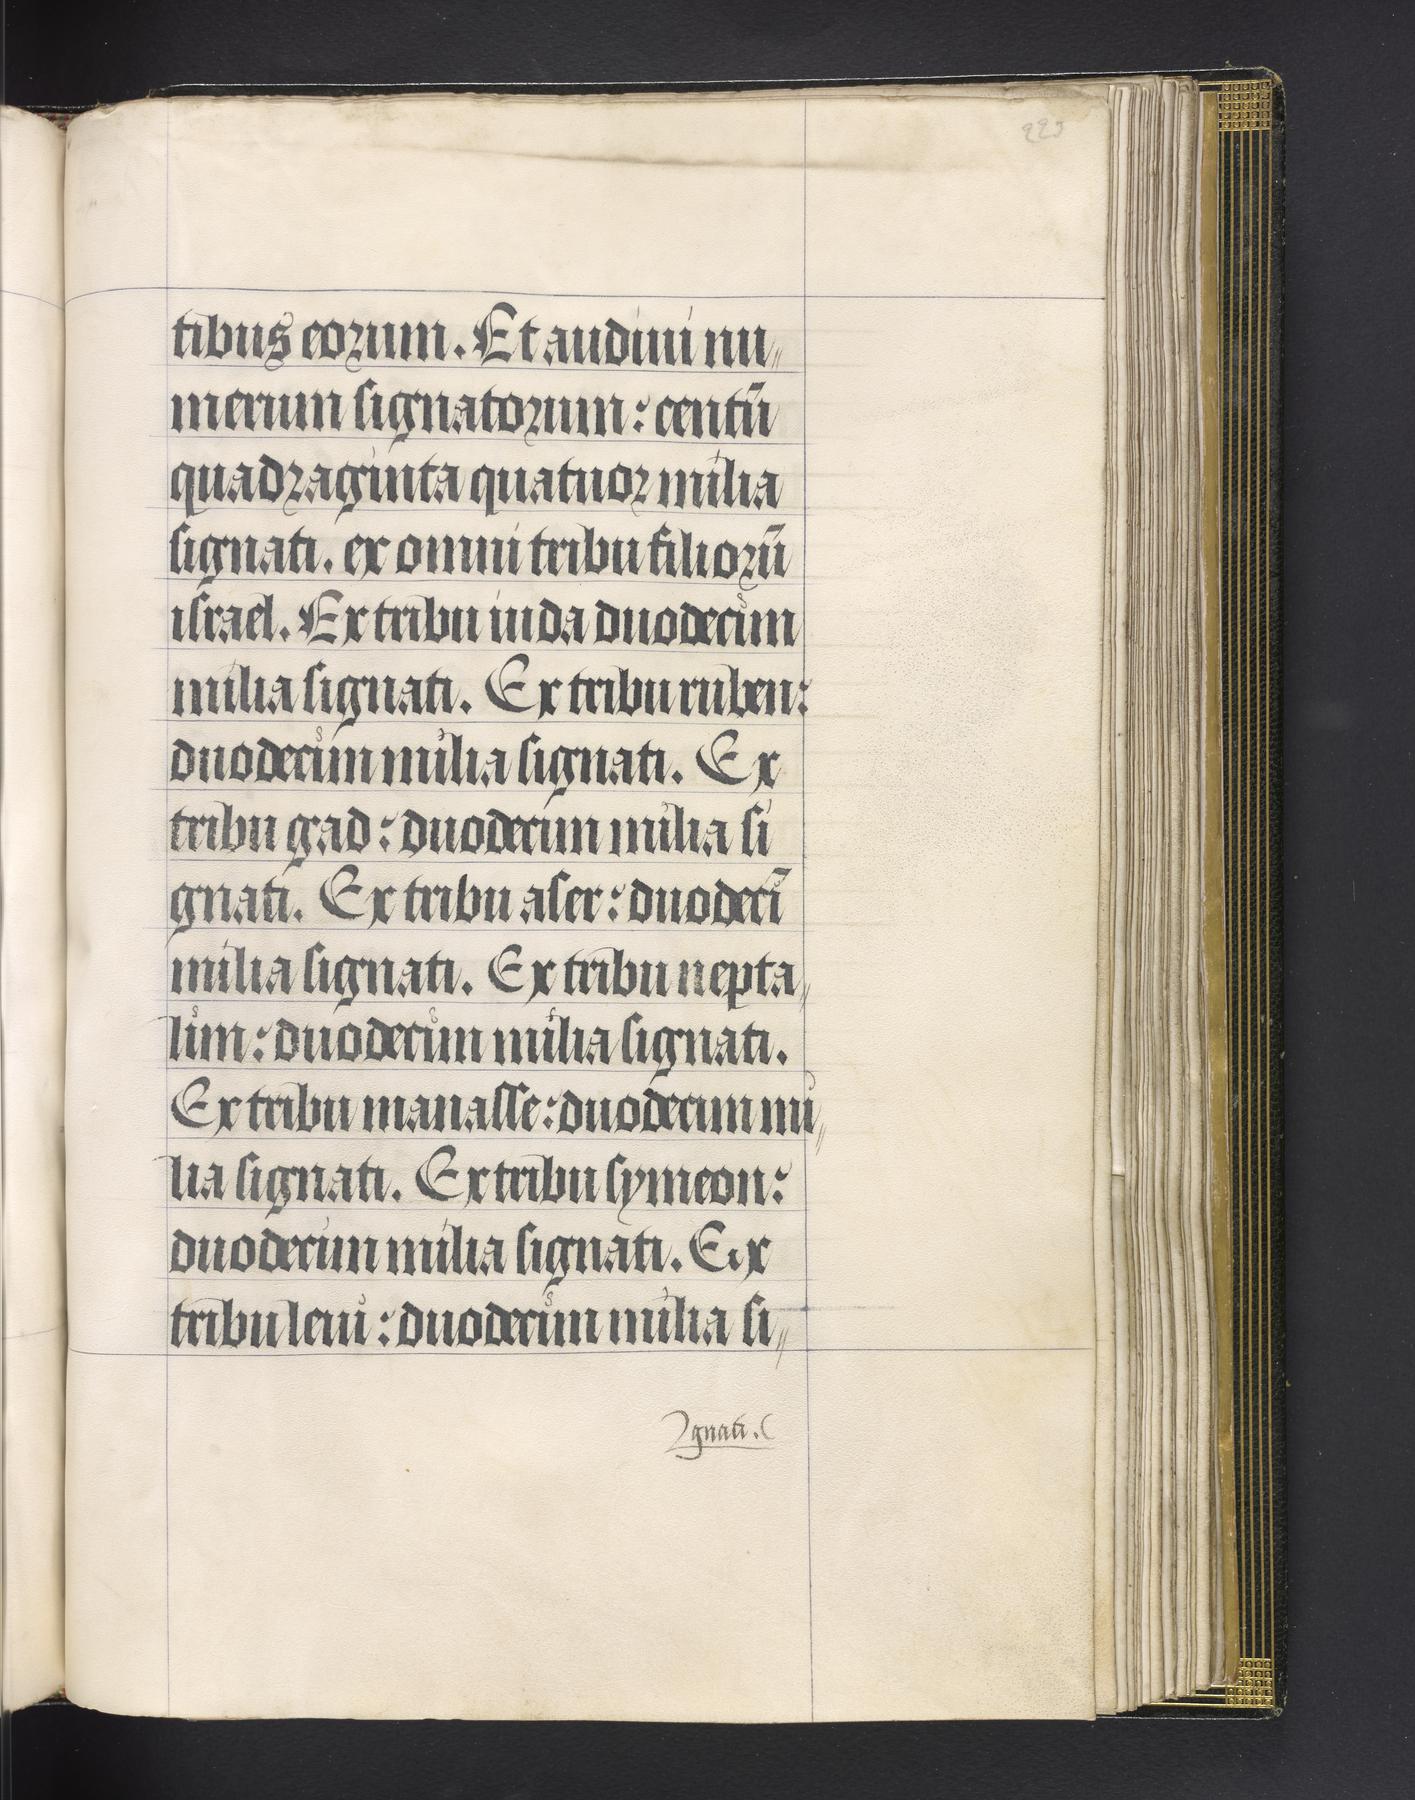 225
tibus eorum. Et audiui nu„
merum signatorum: centū
quadraginta quatuor milia
signati. ex omni tribu filiorū
israel. Ex tribu iuda duodecim
milia signati. Ex tribu ruben:
duodecim milia signati. Ex
tribu gad: duodecim milia si
gnati. Ex tribu aser: duodecī
milia signati. Ex tribu nepta„
lim: duodecim milia signati.
Ex tribu manasse: duodecim mi„
lia signati. Ex tribu symeon:
duodecim milia signati. Ex
tribu leui: duodecim milia si„
gnati.